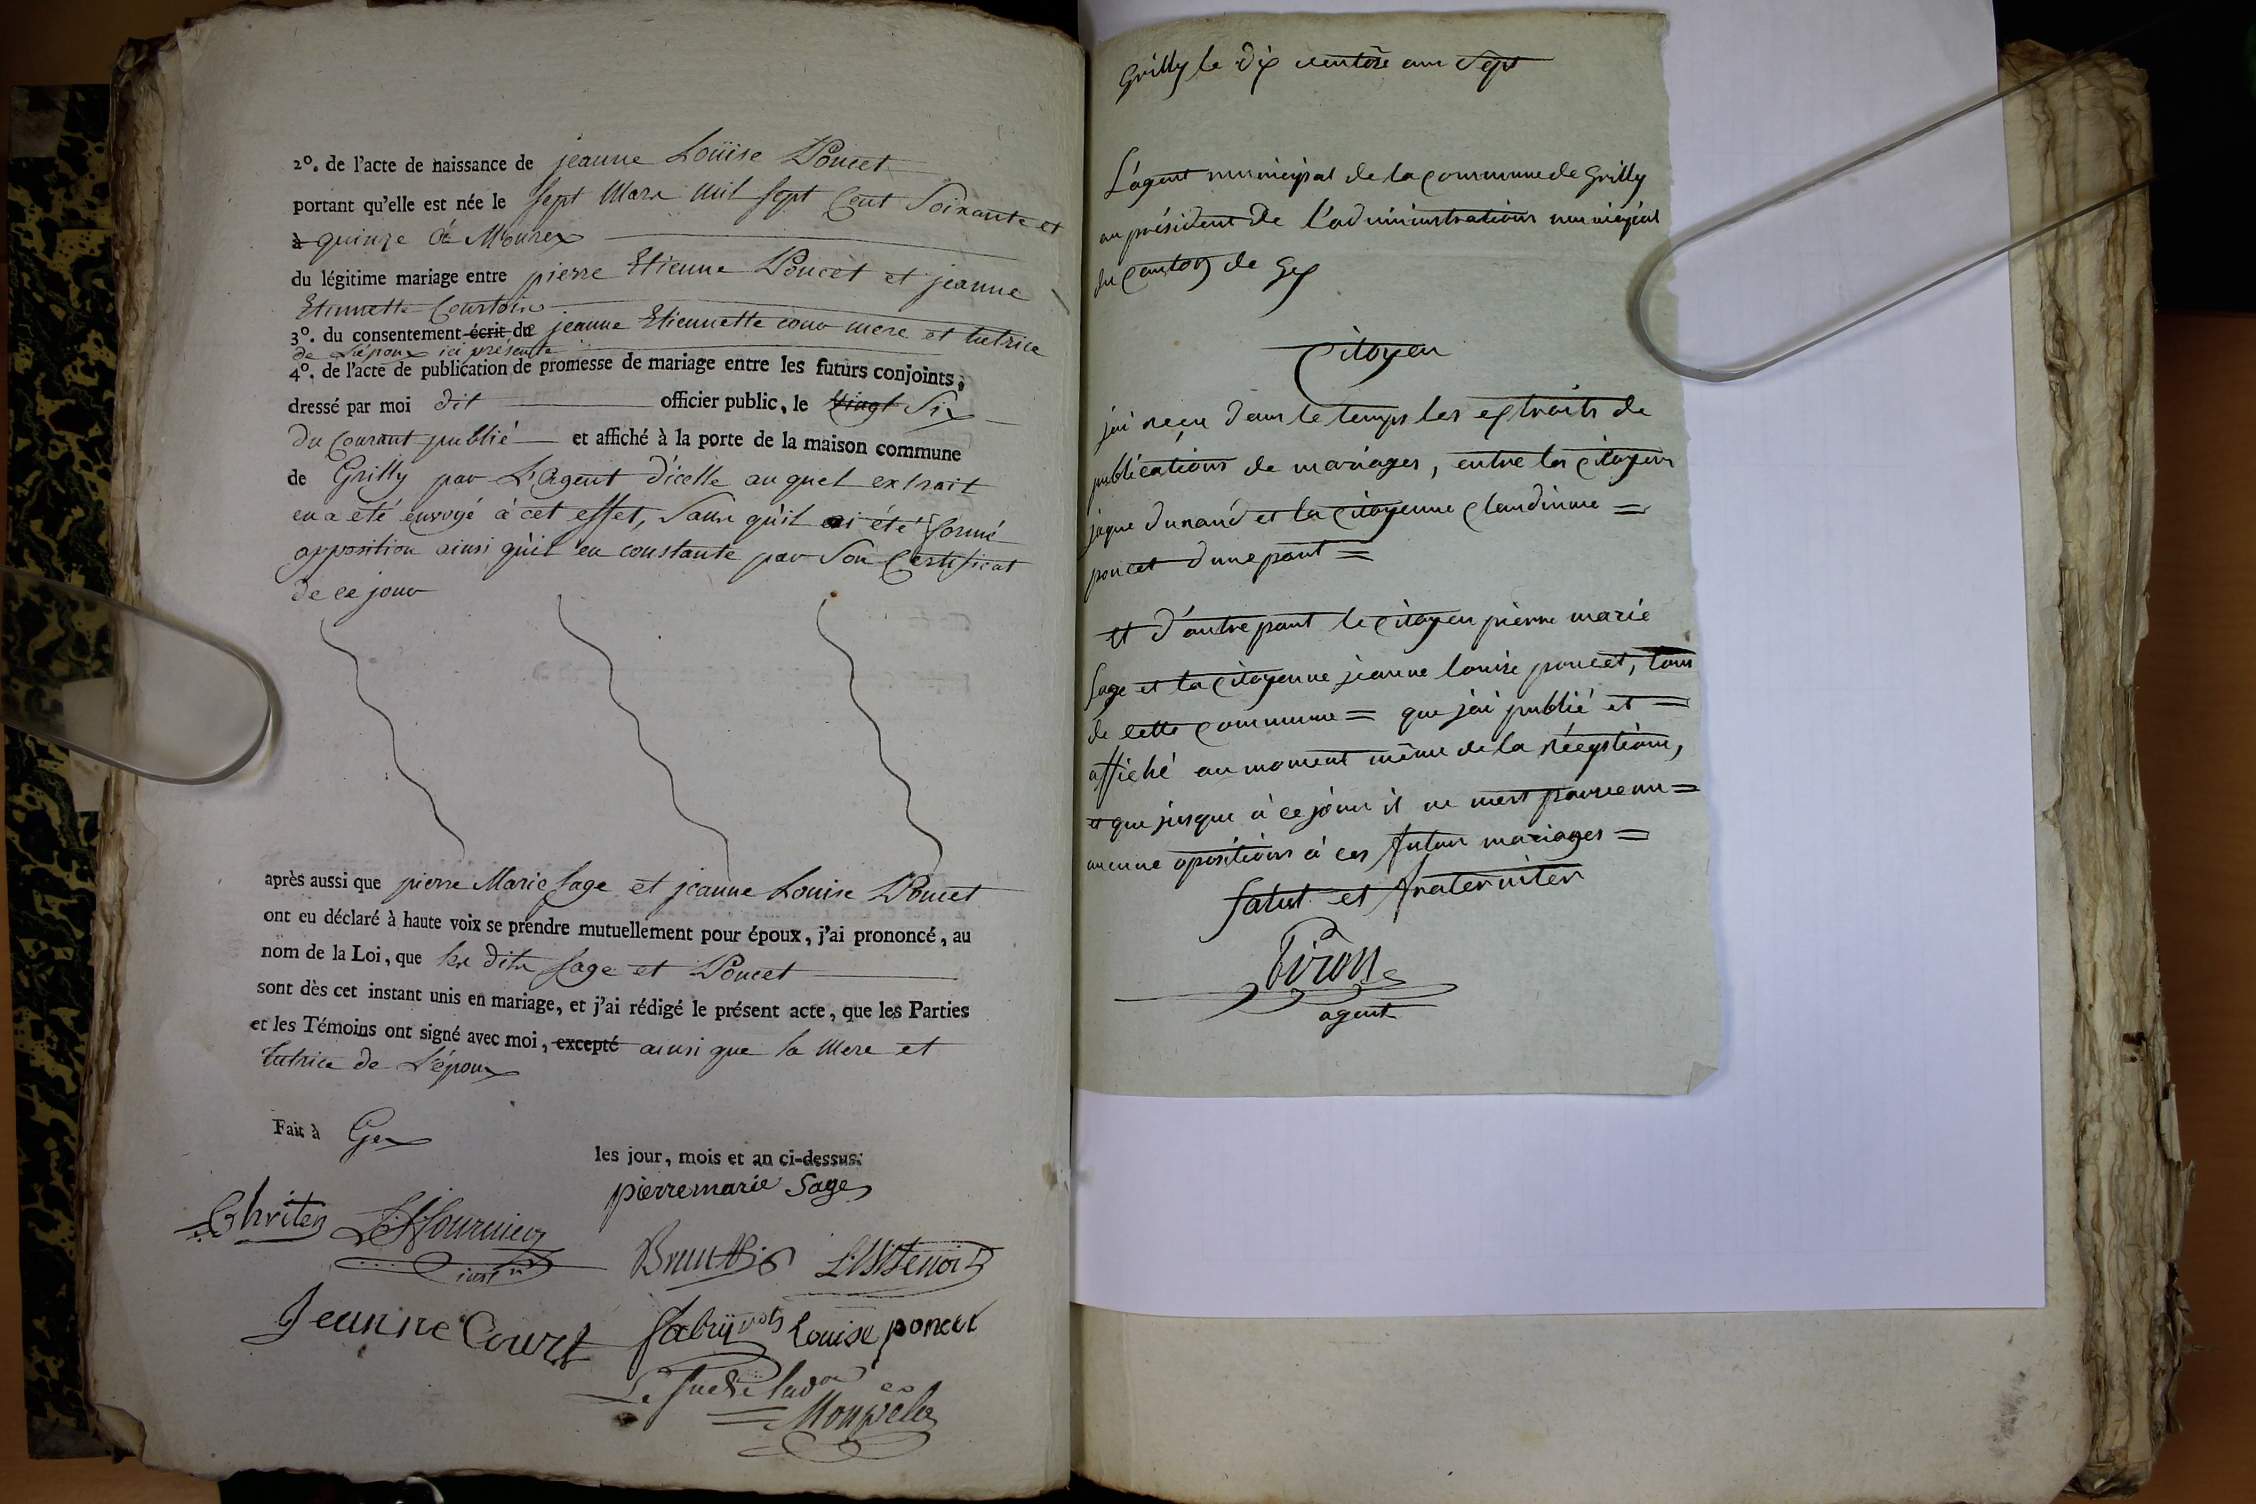 2º. de l'acte de naissance de jeanne Loüise Poncet
portant qu'elle est née le sept Mars mil sept Cent Soixante et
à quinze à Mourex
du légitime mariage entre pierre Etienne Poncet et jeanne
Etiennette Courtois
3º. du consentement écrit de jeanne Etiennette cour mere et tutrice
de L'époux ici présente
4º. de l'acte de publication de promesse de mariage entre les futurs conjoints,
dressé par moi dit officier public, le vingt Six
du Courant publié et affiché à la porte de la maison commune
de Grilly par L'Agent d'icelle auquel extrait
en a eté envoyé à cet effet, Sans qu'il ai été formé
opposition ainsi qu'il en constante par Son Certificat
de ce jour
après aussi que pierre Marie Sage et jeanne Louise Poncet
ont eu déclaré à haute voix se prendre mutuellement pour époux, j'ai prononcé, au
nom de la Loi, que les dits Sage et Poncet
sont dès cet instant unis en mariage, et j'ai rédigé le présent acte, que les Parties
et les Témoins ont signé avec moi, excepté ainsi que la Mere et
tutrice de L'époux
Fait à Gex
les jour, mois et an ci-dessus.
pierre marie Sage
Chriten Fournier
Jeanne Court Fabry Louise poncet
Grilly le dix ventôse an Sept
L'agent municipal de la commune de Grilly
au président de l'administration municipal
du Canton de Gex
Citoyen
jai reçu dans le temps les extraits de
publications de mariages, entre les citoyens
jaque dunand et la citoyenne claudinne =
poncet dune part =
et d'autre part le citoyen pierre marie
Sage et la citoyenne jeanne louise poncet, tous
de cette commune = que jai publié et =
affiché au moment même de la réception,
et que jusque à ce jour il ne mest parvenu =
aucune opositions à ces futur mariages =
Salut et fraterniter
Piron
agent